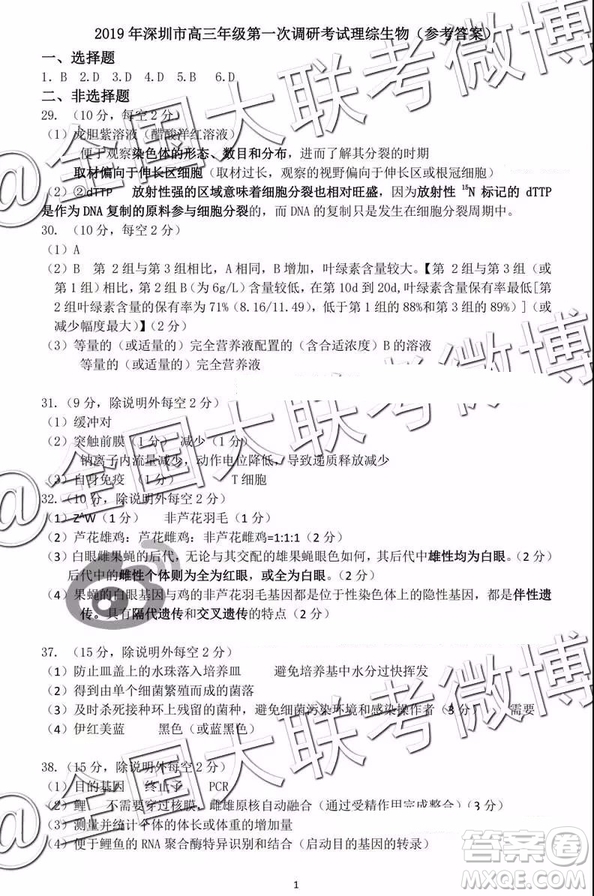 2019 年深圳市高三年级第一次调研考试理综生物（参考答案）
一、选择题
1. B 2.D 3.D 4. C 5.D 6.D
二、非选择题
29. （10 分，每空 2 分）
（1）龙胆紫溶液（醋酸洋红溶液）
便于观察染色体的形态、数目和分布，进而了解其分裂的时期
取材偏向于伸长区细胞（取材过长，观察的视野偏向于伸长区或根冠细胞）
（2）②dTTP 放射性强的区域意味着细胞分裂相对旺盛，因为放射性 ¹⁵N 标记的 dTTP
是作为 DNA 复制的原料参与细胞分裂的，而 DNA 的复制只是发生在细胞分裂周期中。
30. （10 分，每空 2 分）
（1）A
（2）B 第 2 组与第 3 组相比，A 相同，B 增加，叶绿素含量较大。【第 2 组与第 3 组（或
第 1 组）相比，第 2 组的 B（为 6g/L）含量较大，在第 10d 到 20d, 叶绿素含量保有率最低[第
2 组叶绿素含量的保有率为 71%（8.16/11.49），低于第 1 组的 88%和第 3 组的 89%）]（或
减少幅度最大）】（2 分）
（3）等量的（或适量的）完全营养液配置的（含合适浓度）B 的溶液
等量的（或适量的）完全营养液
31. （9 分，除说明外每空 2 分）
（1）缓冲对
（2）突触前膜（1 分） 减少（1 分）
钠离子内流减少，动作电位降低，导致递质释放减少
（3）自身免疫（1 分） T 细胞
32. （10 分，除说明外每空 2 分）
（1）ZᴬW（1 分） 非芦花羽毛（1 分）
（2）芦花雄鸡：芦花雌鸡：非芦花雌鸡=1:1:1（2 分）
（3）白眼雌果蝇的后代，无论与其交配的雄果蝇是何种眼色，其后代中的雄性均为白眼。
后代中的雌性个体则为全为红眼，或全为白眼。（2 分）
（4）果蝇的白眼基因与鸡的非芦花羽毛基因都是位于性染色体上的隐性基因，都是伴性遗
传。具有隔代遗传和交叉遗传的特点（2 分）
37. （15 分，除说明外每空 2 分）
（1）防止皿盖上的水珠落入培养皿 避免培养基中水分过快挥发
（2）得到由单个细菌繁殖而成的菌落
（3）及时杀死接种环上残留的菌种，避免细菌污染环境和感染操作者（3 分）
（4）伊红美蓝 黑色（或蓝黑色）
38. （15 分，除说明外每空 2 分）
（1）目的基因 终止子 PCR
（2）鲤 不需要穿过核膜，雌雄原核自动融合（通过受精作用完成整合）（3 分）
（3）测量并统计个体的体长或体重的增长量
（4）便于鲤鱼的 RNA 聚合酶特异识别和结合（启动目的基因的转录）
1
@全国大联考微博
@全国大联考微博
@全国大联考微博
答案圈